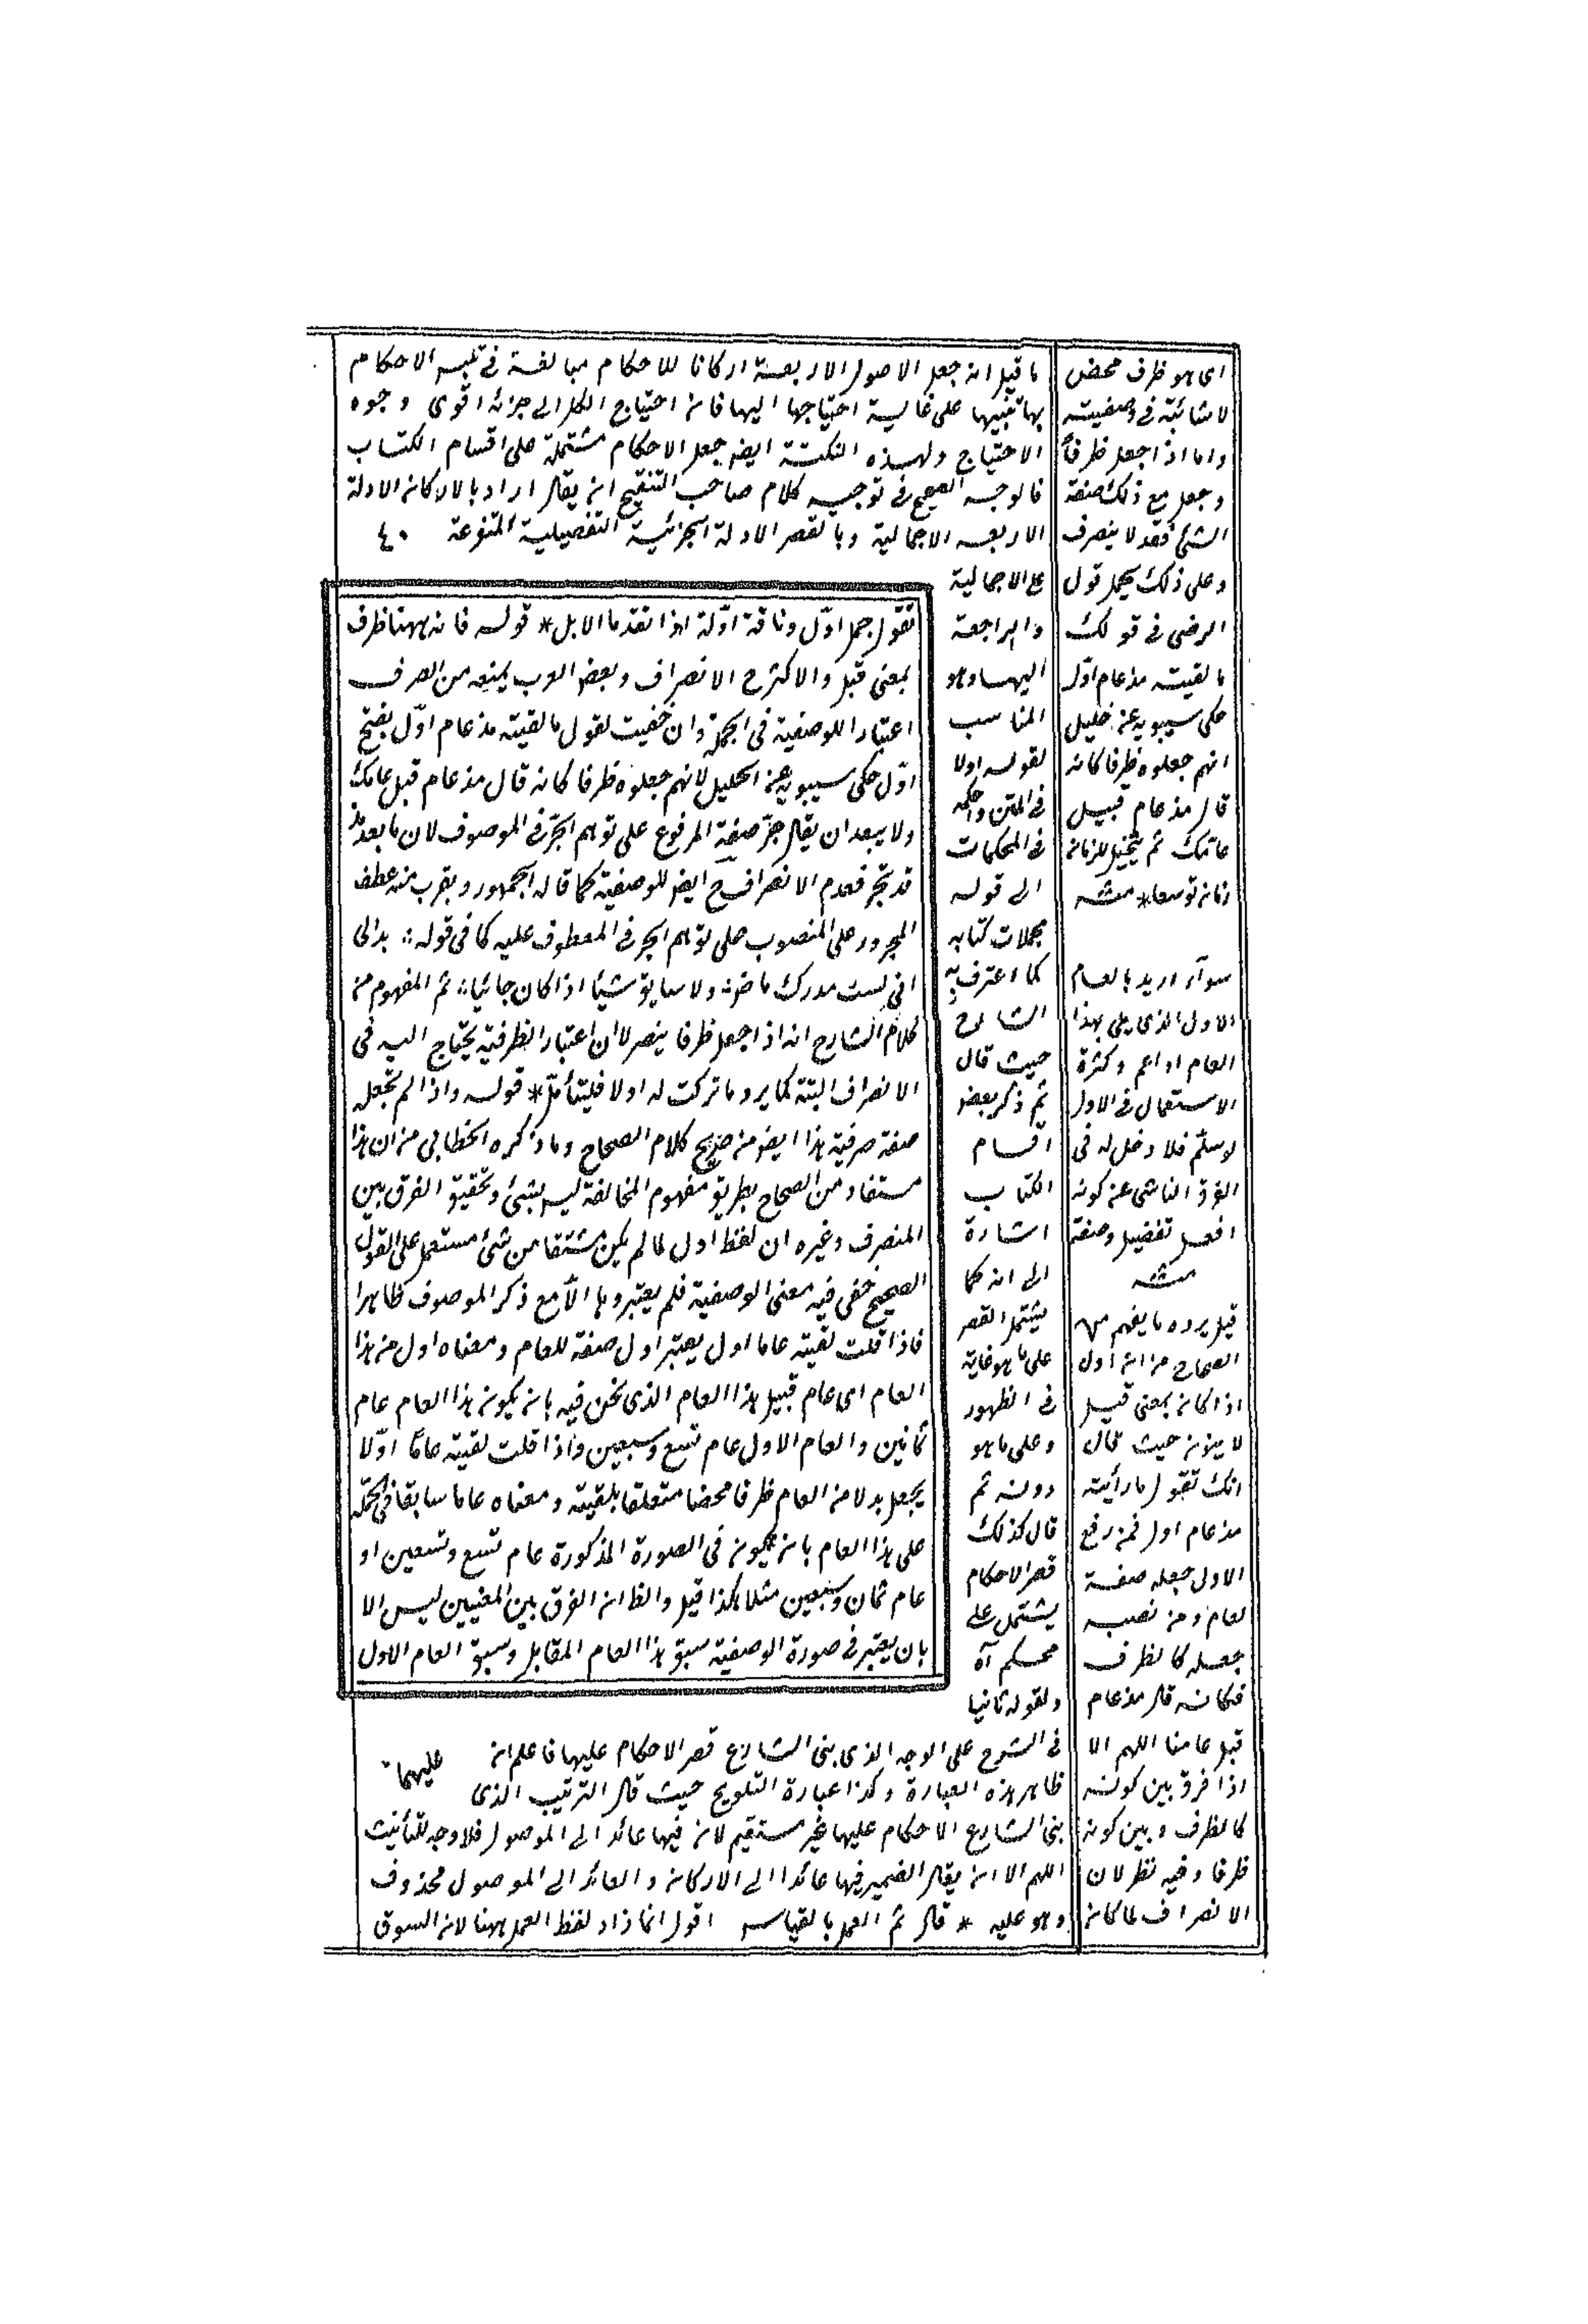 ما قيل انه جعل الاصول الاربعة اركانا للاحكام مبالغة في تلبس الاحكام
بها تنبيها على غاية احتياجها اليها فان احتياج الكل الى جزئه اقوى وجوه
الاحتياج ولهذه النكتة ايضا جعل الاحكام مشتملة على اقسام الكتاب
فالوجه الصحيح في توجيه كلام صاحب التنقيح ان يقال اراد بالاركان الادلة
الاربعه الاجمالية وبالقصر الادلة الجزئية التفصيلية المتنوعة ٤٠
على الاجمالية
والراجعة
اليها وهو
المناسب
لقوله اولا
في المتن واحكمه
في المحكمات
الى قوله
مجملات كتابه
كما اعترف به
الشارح
حيث قال
ثم ذكر بعض
اقسام
الكتاب
اشارة
الى انه كما
يشتمل القصر
على ما هو غاية
في الظهور
وعلى ما هو
دونه ثم
قال كذلك
قصر الاحكام
يشتمل على
محكم آه
ولقوله ثانيا
في الشرح على الوجه الذى بنى الشارع قصر الاحكام عليها فاعلم ان عليهما
ظاهر هذه العبارة وكذا عبارة التلويح حيث قال الترتيب الذى
بنى الشارع الاحكام عليها غير مستقيم لان فيها عائد الى الموصول فلا وجه للتأنيث
اللهم الا ان يقال الضمير فيها عائدا الى الاركان والعائد الى الموصول محذوف
وهو عليه * قال ثم العمل بالقياس اقول انما زاد لفظ العمل ههنا لان السوق
تقول جمل اوّل وناقة اوّلة اذا تقدما الابل * قوله فانه ههنا ظرف
بمعنى قبل والاكثر ح الانصراف وبعض العرب يمنعه من الصرف
اعتبارا للوصفية في الجملة وان خفيت لقول ما لقيته مذ عام اوّل بفتح
اوّل حكى سيبويه عن الخليل لانهم جعلوه ظرفا كانه قال مذ عام قبل عامك
ولا يبعد ان يقال جرّ صفة المرفوع على توهم الجرّ في الموصوف لان ما بعد مذ
قد يجر فعدم الانصراف ح ايضا للوصفية كما قاله الجمهور ويقرب منه عطف
المجرور على المنصوب على توهم الجر في المعطوف عليه كما في قوله :: بدا لى
انى لست مدرك ما مضى ولا سابق شيئا اذا كان جائيا :: ثم المفهوم من
كلام الشارح انه اذا جعل ظرفا ينصر لان اعتبار الظرفية يحتاج اليه في
الانصراف البتة كما يرد ما تركت له اولا فليتأمل * قوله واذا لم تجعله
صفة صرفية هذا ايضا من صريح كلام الصحاح وما ذكره الخطابي من ان هذا
مستفاد من الصحاح بطريق مفهوم المخالفة ليس بشئ وتحقيق الفرق بين
المنصرف وغيره ان لفظ اول لما لم يكن مشتقا من شئ مستعمل على القول
الصحيح خفى فيه معنى الوصفية فلم يعتبروها الا مع ذكر الموصوف ظاهرا
فاذا قلت لقيته عاما اول يعتبر اول صفة للعام ومعناه اول من هذا
العام اى عام قبيل هذا العام الذى نحن فيه بان يكون هذا العام عام
ثمانين والعام الاول عام تسع وسبعين واذا قلت لقيته عاما اوّلا
يجعل بدلا من العام ظرفا محضا متعلقا بلقيته ومعناه عاما سابقا في الجملة
على هذا العام بان يكون في الصورة المذكورة عام تسع وتسعين او
عام ثمان وسبعين مثلا هكذا قيل والظ ان الفرق بين المعنيين ليس الا
بان يعتبر في صورة الوصفية سبق هذا العام المقابل وسبق العام الاول
اى هو ظرف محض
لا شائبة في وصفيته
واما اذا جعل ظرفاً
وجعل مع ذلك صفة
الشئ فقد لا ينصرف
وعلى ذلك يحمل قول
الرضى في قولك
ما لقيته مذ عام اوّل
حكى سيبويه عن خليل
انهم جعلوه ظرفا كانه
قال مذ عام قبيل
عامك ثم يتخيل للزمان
زمان توسعا * منه
سواء اريد بالعام
الاول الذى يلى بهذا
العام او اعم وكثرة
الاستعمال في الاول
لو سلم فلا دخل له في
الفرق الناشى عن كونه
افعل تفضيل وصفة
منه
قيل يرده ما يفهم من
الصحاح من ان اول
اذا كان بمعنى قبل
لا ينون حيث قال
انك تقول ما رأيته
مذ عام اول فمن رفع
الاول جعله صفة
لعام ومن نصب
جعله كالظرف
فكانه قال مذ عام
قبل عامنا اللهم الا
اذا فرق بين كونه
كالظرف وبين كونه
ظرفا وفيه نظر لان
الانصراف لما كان